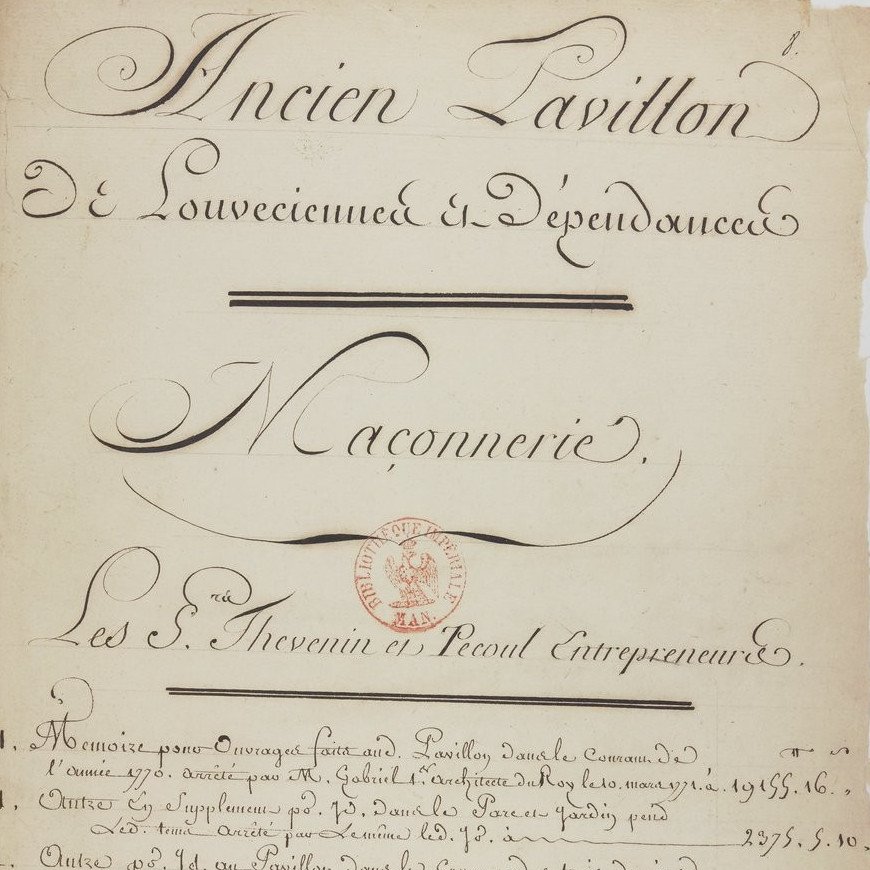 8.
Ancien Pavillon
De Louveciennes et Dépendances
Maçonnerie.
BIBLIOTHÈQUE IMPÉRIALE
MAN.
Les S.rs Thevenin et Pecoul Entrepreneurs.
1. Memoire pour Ouvrages faits aud. Pavillon dans le Courant de
l'année 1770. arrêté par M. Gabriel 1.er architecte du Roy le 10. mars 1771. à 19155. 16. "
1. Autre En Supplement po. Id. dans le Parc et Jardin pend
Led. tems arrêté par Le même led. Jo. à 2375. 5. 10.
Autre po. Id. au Pavillon dans le